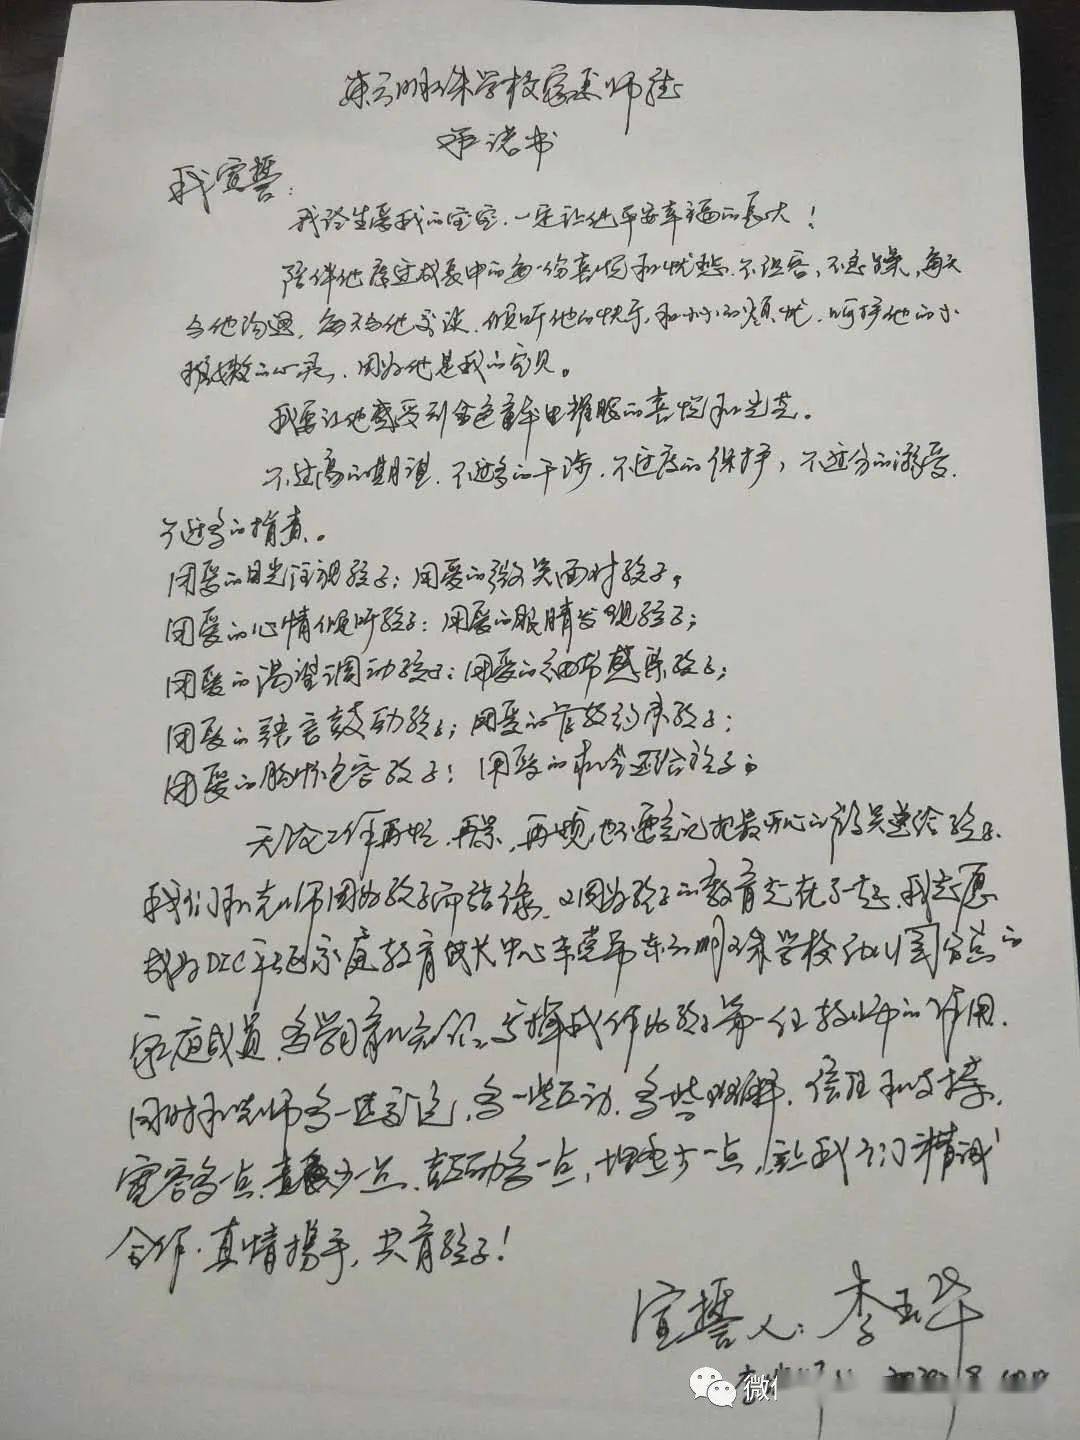 东方明珠学校家委师徒
承诺书
我宣誓：
我终生爱我的宝宝，一定让他平安幸福的长大！
陪伴他度过成长中的每一份喜悦和忧愁，不限容，不急躁，每天
与他沟通，每天与他交谈，倾听他的快乐和小小的烦忧，呵护他的小
稚嫩的心灵，因为他是我的宝贝。
我要让他感受到金色童年里耀眼的喜悦和光芒。
不过高的期望，不过多的干涉，不过度的保护，不过分的溺爱，
不过多的指责。
用爱的目光注视孩子；用爱的微笑面对孩子，
用爱的心情倾听孩子：用爱的眼睛发现孩子；
用爱的渴望调动孩子：用爱的细节感染孩子；
用爱的语言鼓励孩子；用爱的管教约束孩子：
用爱的胸怀包容孩子！用爱的机会还给孩子。
无论工作再忙，再累，再烦，也不要忘记把最开心的微笑送给孩子。
我们和老师因为孩子而结缘，又因为孩子的教育走在了一起，我志愿
成为DIC 家庭教育成长中心东莞市东方明珠学校
家庭成员，多学习育儿知识，发挥我作为孩子第一任教师的作用，
同时和老师多一些交流，多一些互动，多些理解，信任和支持，
宽容多一点，责备少一点，鼓励多一点，埋怨少一点，让我们精诚
合作，真情携手，共育孩子！
宣誓人：李玉华